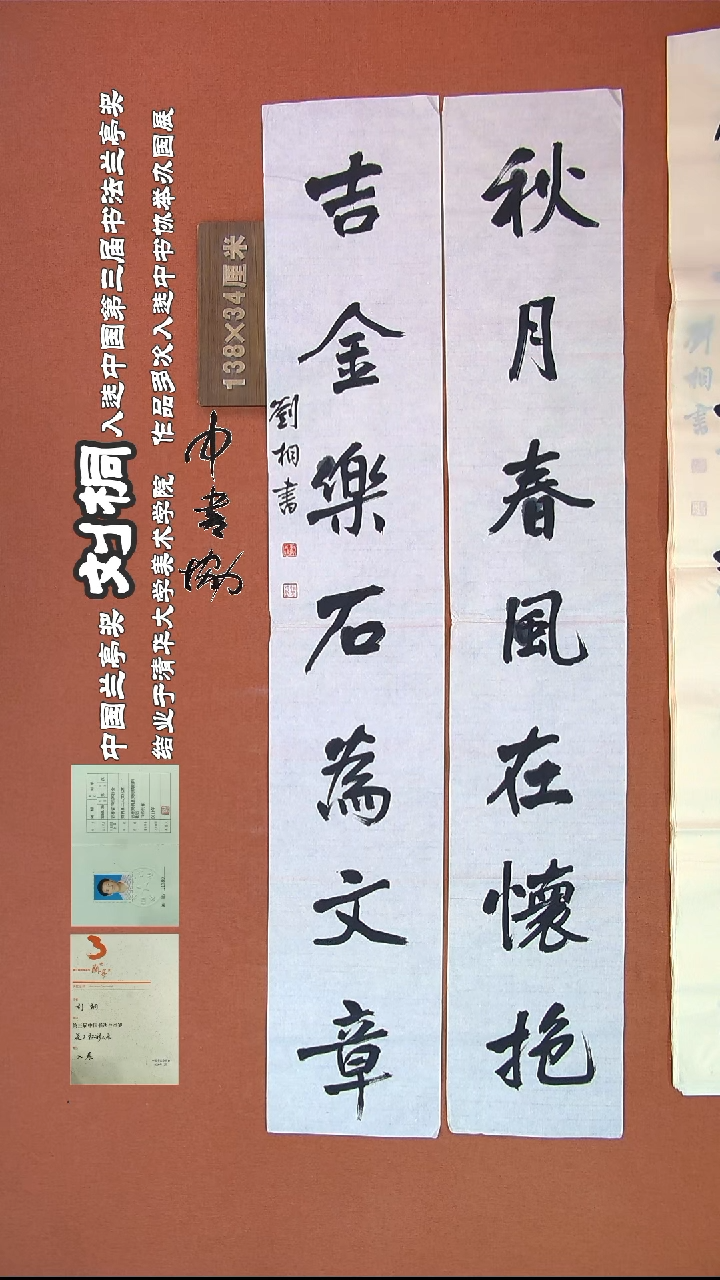 秋月春風在懷抱
吉金樂石為文章
劉桐書
138×34厘米
中国兰亭奖 刘桐 入选中国第三届书法兰亭奖
结业于清华大学美术学院 作品多次入选中书协举办国展
中书协
劉桐書